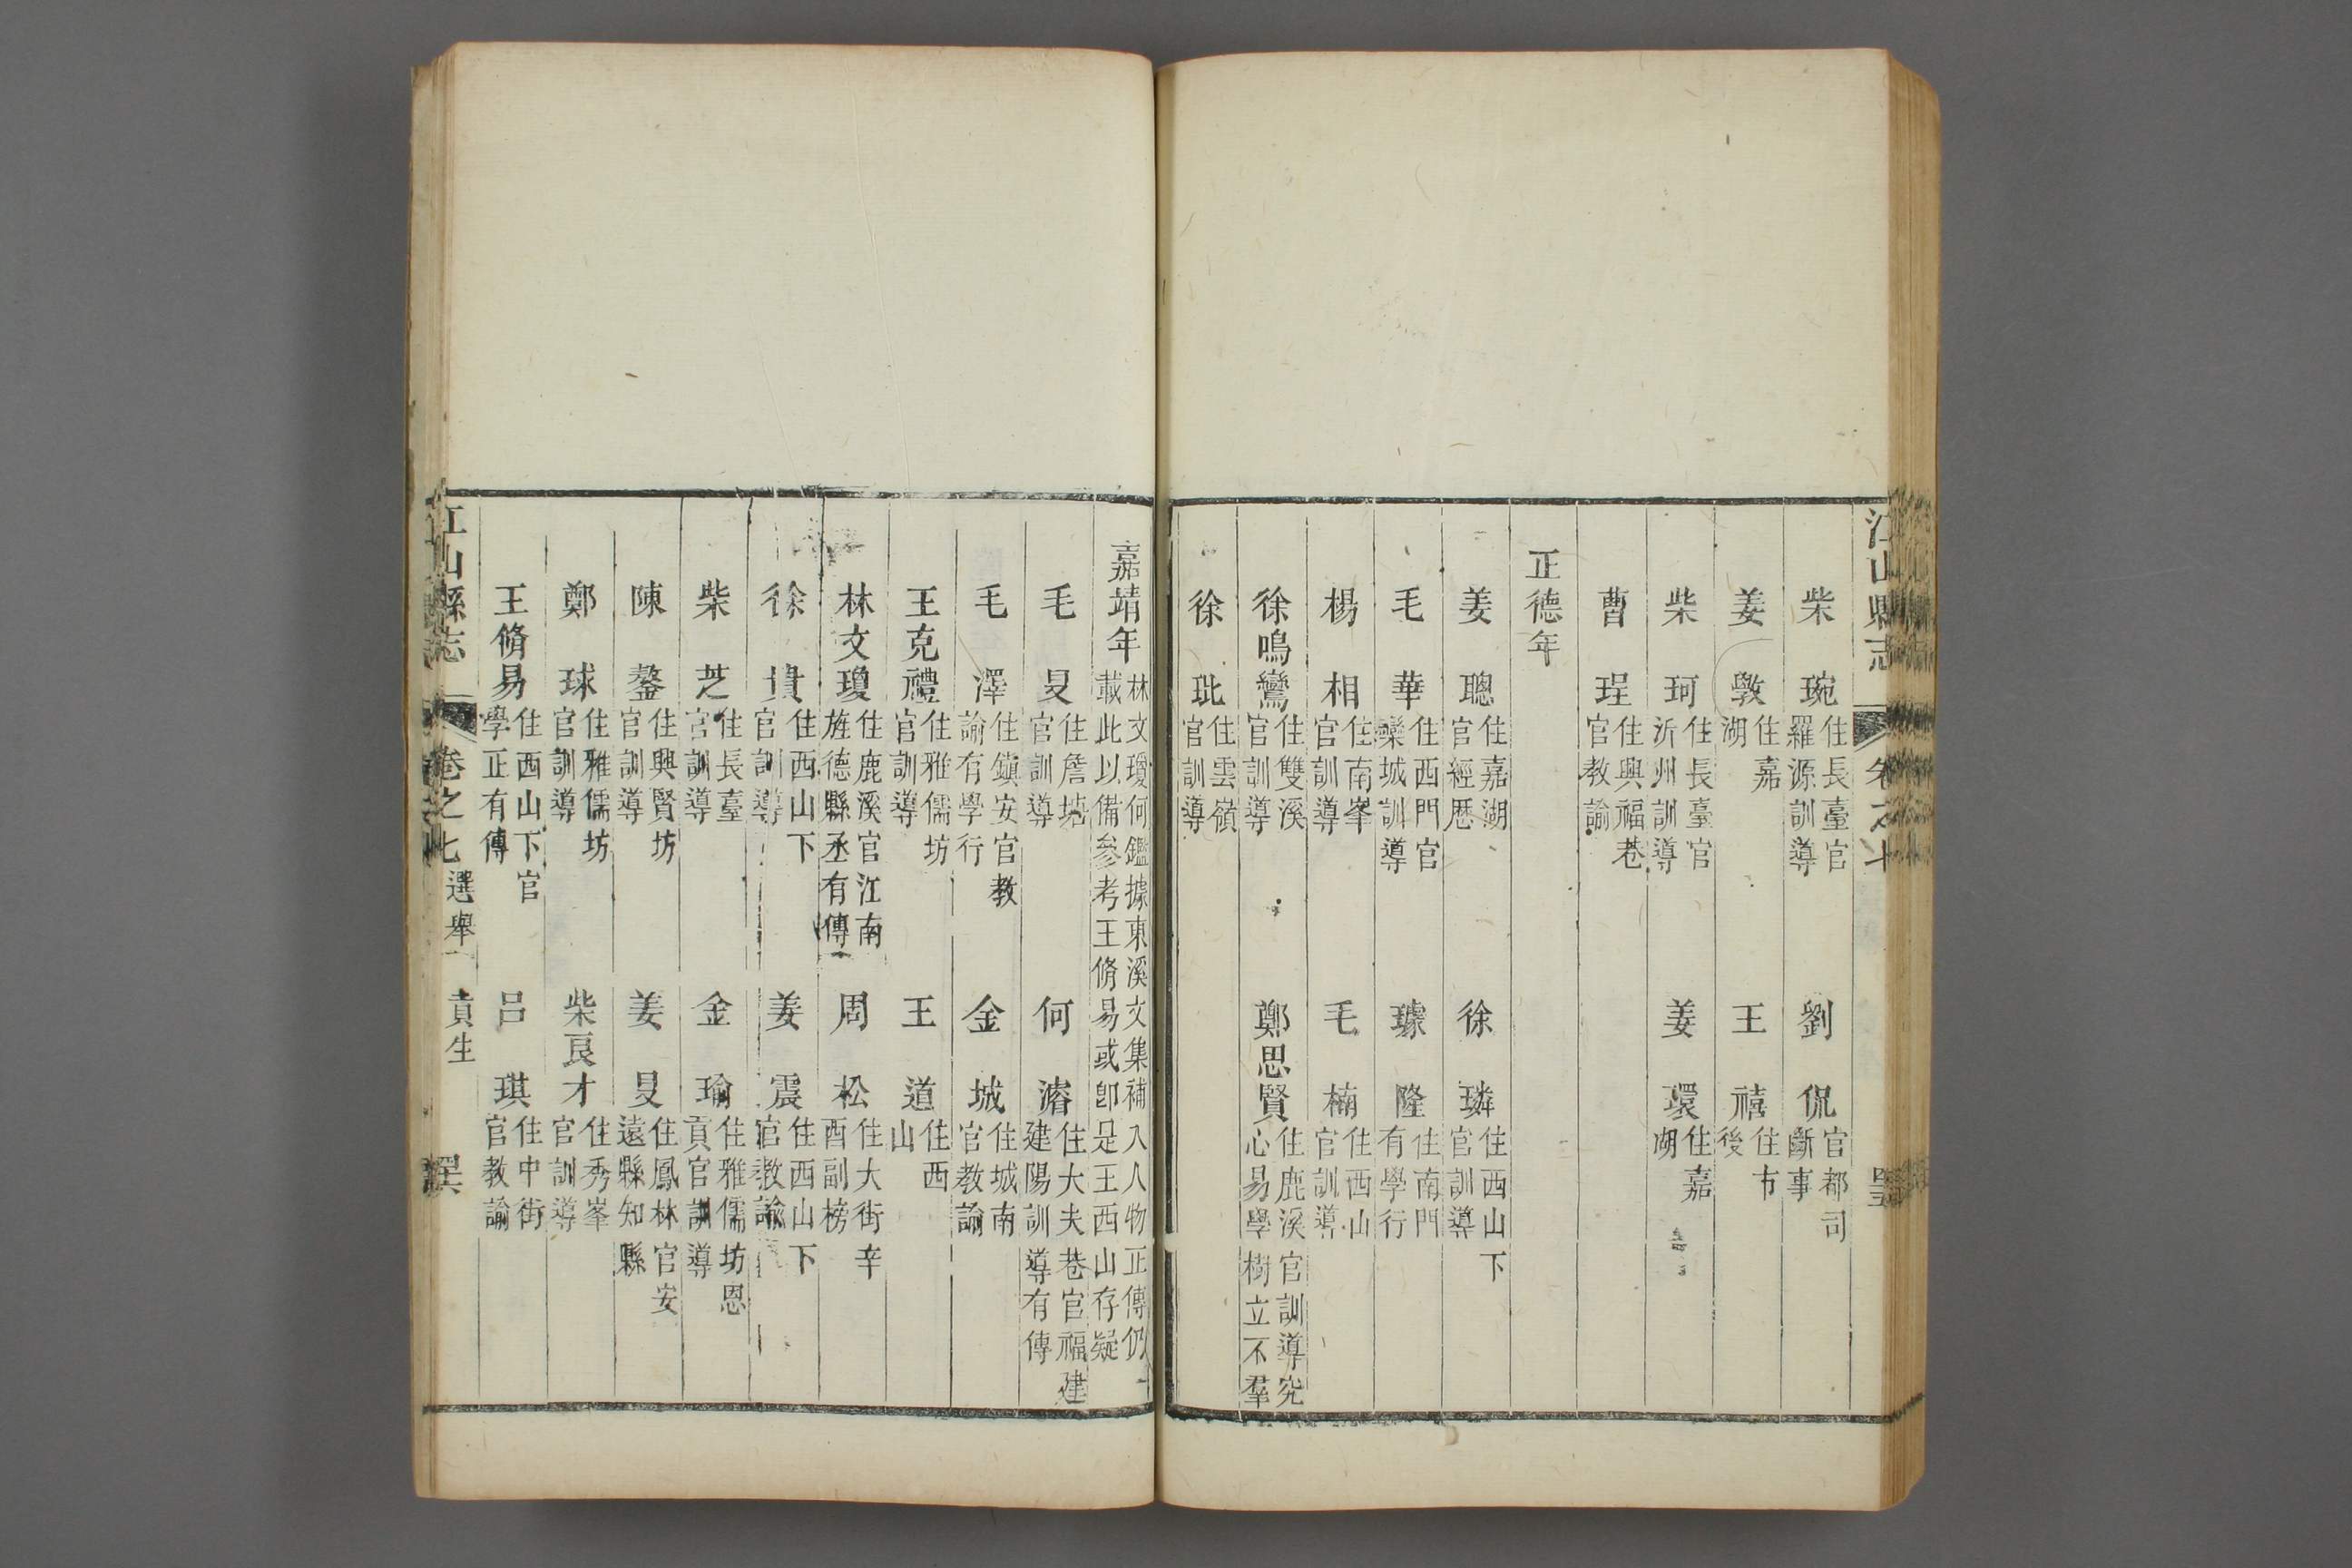 江山縣志 卷之七
柴琬 住長臺官羅源訓導 劉侃 官都司斷事
姜斅 住嘉湖 王禧 住市後
柴珂 住長臺官沂州訓導 姜環 住嘉湖
曹珵 住興福巷官教諭
正德年
姜聰 住嘉湖官經歷 徐璘 住西山下官訓導
毛華 住西門官欒城訓導 璩隆 住南門有學行
楊相 住南峯官訓導 毛楠 住西山官訓導
徐鳴鸞 住雙溪官訓導 鄭思賢 住鹿溪官訓導究心易學樹立不羣
徐玭 住雲嶺官訓導
嘉靖年 林文瓊何鑑據東溪文集補入人物正傳仍載此以備參考王脩易或卽是王西山存疑
毛旻 住詹塘官訓導 何濬 住大夫巷官福建建陽訓導有傳
毛澤 住鎮安官教諭有學行 金城 住城南官教諭
王克禮 住雅儒坊官訓導 王道 住西山
林文瓊 住鹿溪官江南旌德縣丞有傳 周松 住大街辛酉副榜
徐貴 住西山下官訓導 姜震 住西山下官教諭
柴芝 住長臺官訓導 金瑜 住雅儒坊恩貢官訓導
陳鏊 住興賢坊官訓導 姜旻 住鳳林官安遠縣知縣
鄭球 住雅儒坊官訓導 柴良才 住秀峯官訓導
王脩易 住西山下官學正有傳 呂琪 住中街官教諭
江山縣志 卷之七 選舉 貢生